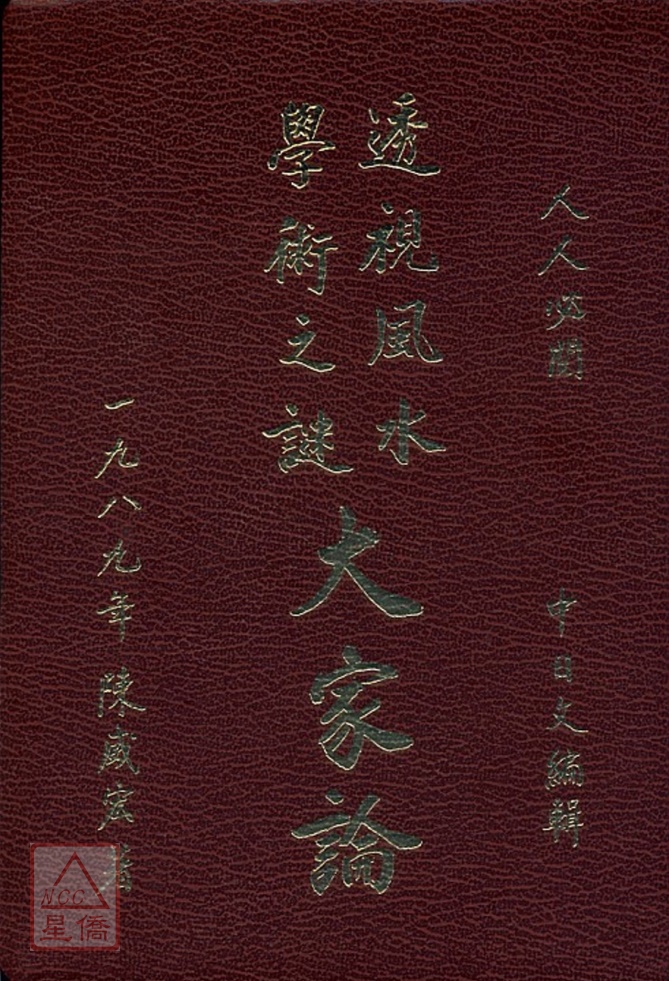 人人必閱
中日文編輯
透視風水
學術之謎
大家論
一九八九年 陳威宏
NCC
星僑